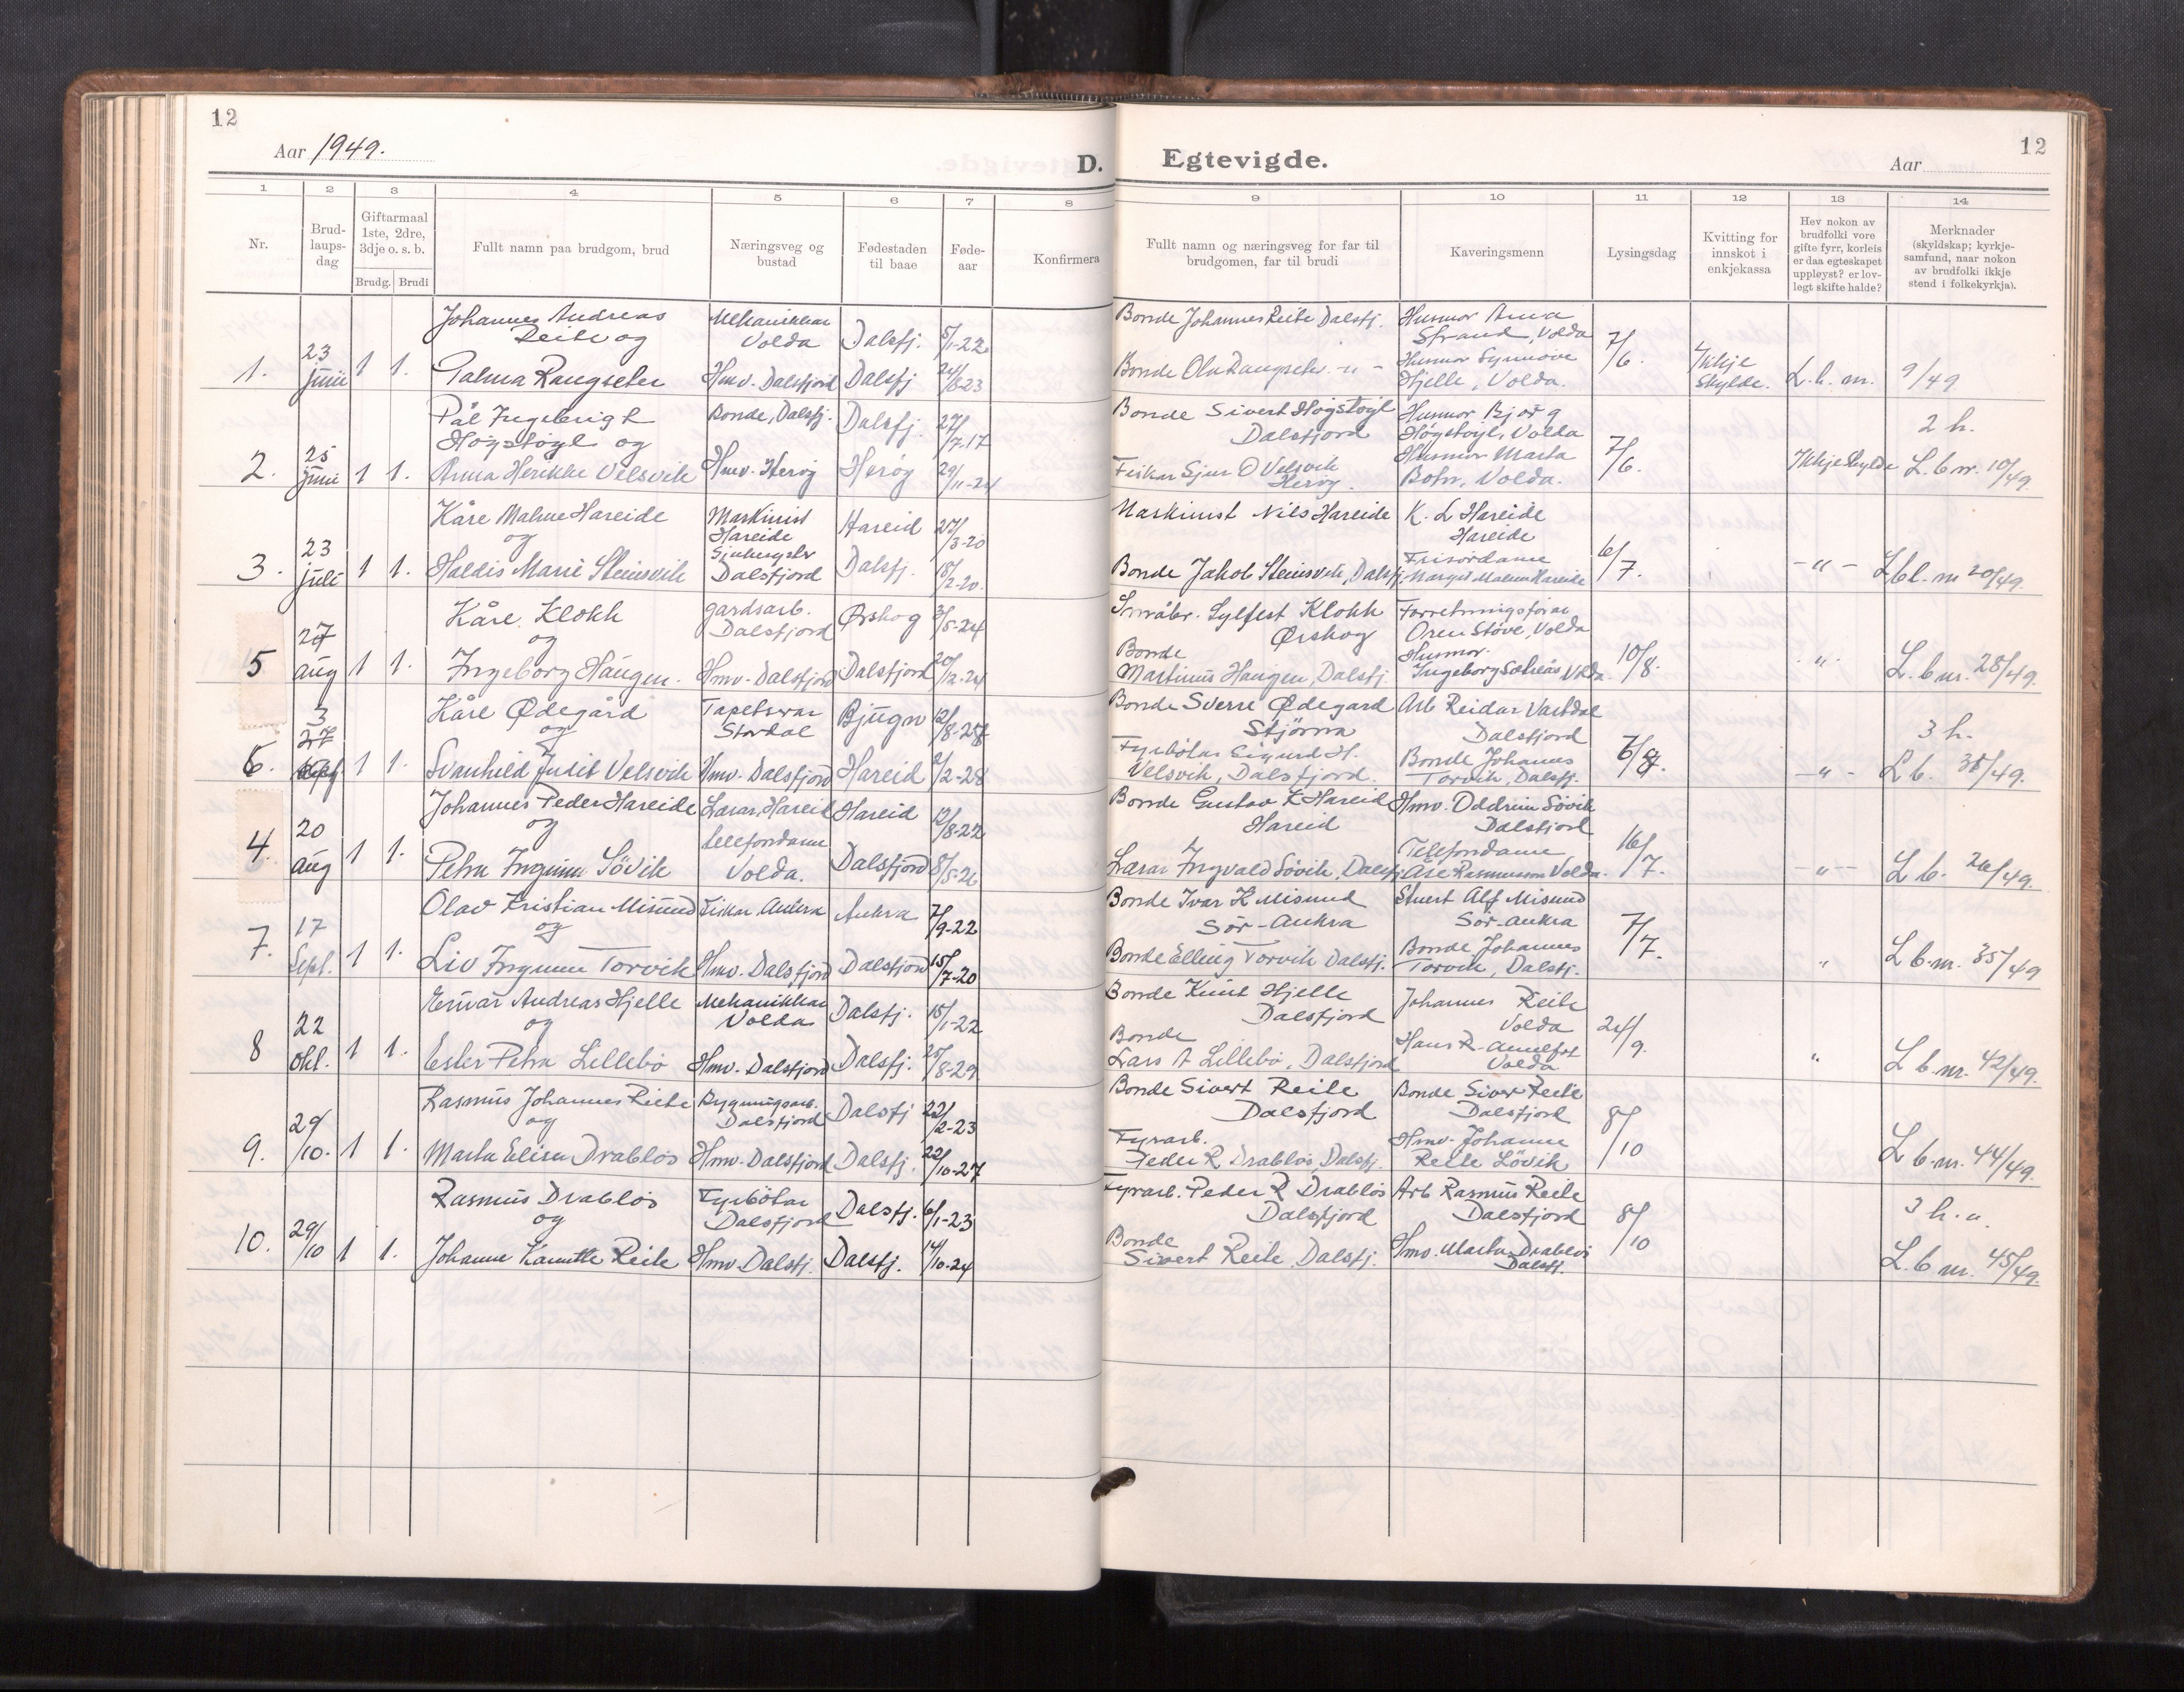 12
Aar 1949.
D.
1 2 3 4 5 6 7 8
Nr.
Brud-
laups-
dag
Giftarmaal
1ste, 2dre,
3dje o. s. b.
Brudg. Brudi
Fullt namn paa brudgom, brud
Næringsveg og
bustad
Fødestaden
til baae
Føde-
aar
Konfirmera
1.
23
juni
1 1.
Johannes Andreas
Reite og
Palma Rangseter
Mekanikkar
Volda
Hmv. Dalsfjord
Dalsfj.
Dalsfj
5/1-22
24/8-23
2.
25
juni
1 1.
Pål Ingebrigt
Høgstøyl og
Anna Herikke Velsvik
Bonde, Dalsfj.
Hmv. Herøy
Dalsfj.
Herøy
27/7-17
29/11-24
3.
23
juli
1 1.
Kåre Malme Hareide
og
Haldis Marie Steinsvik
Maskinist
Hareide
Dalsfjord
Hareid
Dalsfj.
27/3-20
18/2-20.
5
27
aug
1 1.
Kåre Klokk
og
Ingeborg Haugen.
gardsarb.
Dalsfjord
Hmv. Dalsfjord
Ørskog
Dalsfjord
3/5-24
20/12-24
6.
3
1 1.
Kåre Ødegård
og
Svanhild Judit Velsvik
Tapetserar
Stordal
Hmv. Dalsfjord
Bjugn
Hareid
12/8-25
2/2-28
4.
20
aug
1 1.
Johannes Peder Hareide
og
Petra Ingunn Søvik
Lærar, Hareid
telefondame
Volda.
Hareid
Dalsfjord
12/8-22
8/5-26
7.
17
Sept.
1 1.
Olav Kristian Misund
og
Liv Ingunn Torvik
Fiskar Aukra
Hmv. Dalsfjord
Aukra
Dalsfjord
7/9-22
15/7-20
8
22
okt.
1 1.
Einar Andreas Hjelle
og
Ester Petra Lillebø
Mekanikkar
Volda
Hmv. Dalsfjord
Dalsfj.
Dalsfj.
15/1-22
25/8-29
9.
29/10.
1 1.
Rasmus Johannes Reite
og
Marta Elisa Drabløs
Bygningsarb.
Dalsfjord
Hmv. Dalsfjord
Dalsfj
Dalsfj.
22/2-23
22/10-27
10.
29/10
1 1.
Rasmus Drabløs
og
Johanne Kamilla Reite
Fyrbøtar
Dalsfjord
Hmv. Dalsfj.
Dalsfj.
Dalsfj.
6/1-23
14/10-24
Egtevigde.
Aar
12
9 10 11 12 13 14
Fullt namn og næringsveg for far til
brudgomen, far til brudi
Kaveringsmenn
Lysingsdag
Kvitting for
innskot i
enkjekassa
Hev nokon av
brudfolki vore
gifte fyrr, korleis
er daa egteskapet
uppløyst? er lov-
legt skifte halde?
Merknader
(skyldskap; kyrkje-
samfund, naar nokon
av brudfolki ikkje
stend i folkekyrkja).
Bonde Johannes Reite Dalsfj.
Bonde Ola Rangseter - " -
Husmor Anna
Strand, Volda
Husmor Synnøve
Hjelle, Volda.
7/6.
Ikkje
skylde.
L. b. nr. 9/49
Bonde Sivert Høgstøyl
Dalsfjord
Fiskar Sjur O Velsvik
Herøy.
Husmor Bjørg
Høgstøyl, Volda
Husmor Marta
Botn, Volda.
7/6.
Ikkje skylde
2 h.
L. b. nr. 10/49.
Maskinist Nils Hareide
Bonde Jakob Steinsvik, Dalsfj.
K. L Hareide
Hareide
Frisørdame
Margit Malme Hareide
6/7.
- " -
L b. nr 20/49.
Småbr. Sylfest Klokk
Ørskog
Bonde
Martinus Haugen, Dalsfj.
Forretningsførar
Støve, Volda
Husmor
Ingeborg Volda.
10/8.
"
L. b nr. 28/49.
Bonde Sverre Ødegard
Stjørna
Fyrbøtar Sigurd H.
Velsvik, Dalsfjord.
Arb Reidar Vartdal
Dalsfjord
Bonde Johannes
Torvik, Dalsfj.
- " -
3 h.
L b. 31/49.
Bonde Gustav K Hareid
Hareid
Lærar Ingvald Søvik, Dalsfj.
Hmv. Oddrun Søvik
Dalsfjord
Telefondame
Åse Rasmussen Volda.
16/7.
- " -
L b. 26/49.
Bonde Ivar K Misund
Sør-Aukra
Bonde Elling Torvik Dalsfj.
Stuert Alf Misund
Sør-Aukra
Bonde Johannes
Torvik, Dalsfj.
7/7.
"
L b. nr. 35/49
Bonde Knut Hjelle
Dalsfjord
Bonde
Lars A Lillebø, Dalsfjord
Johannes Reite
Volda
Hans R. Amelfot
Volda
24/9.
"
L b. nr. 42/49.
Bonde Sivert Reite
Dalsfjord
Fyrarb.
Peder R. Drabløs, Dalsfj.
Bonde Siver Reite
Dalsfjord
Hmv. Johanne
Reite Løvik
8/10
L b. nr. 44/49.
Fyrarb. Peder R Drabløs
Dalsfjord
Bonde
Sivert Reite, Dalsfj.
Arb Rasmus Reite
Dalsfjord
Hmv. Marta Drabløs
Dalsfj.
8/10
3 h. a.
L. b nr. 45/49.